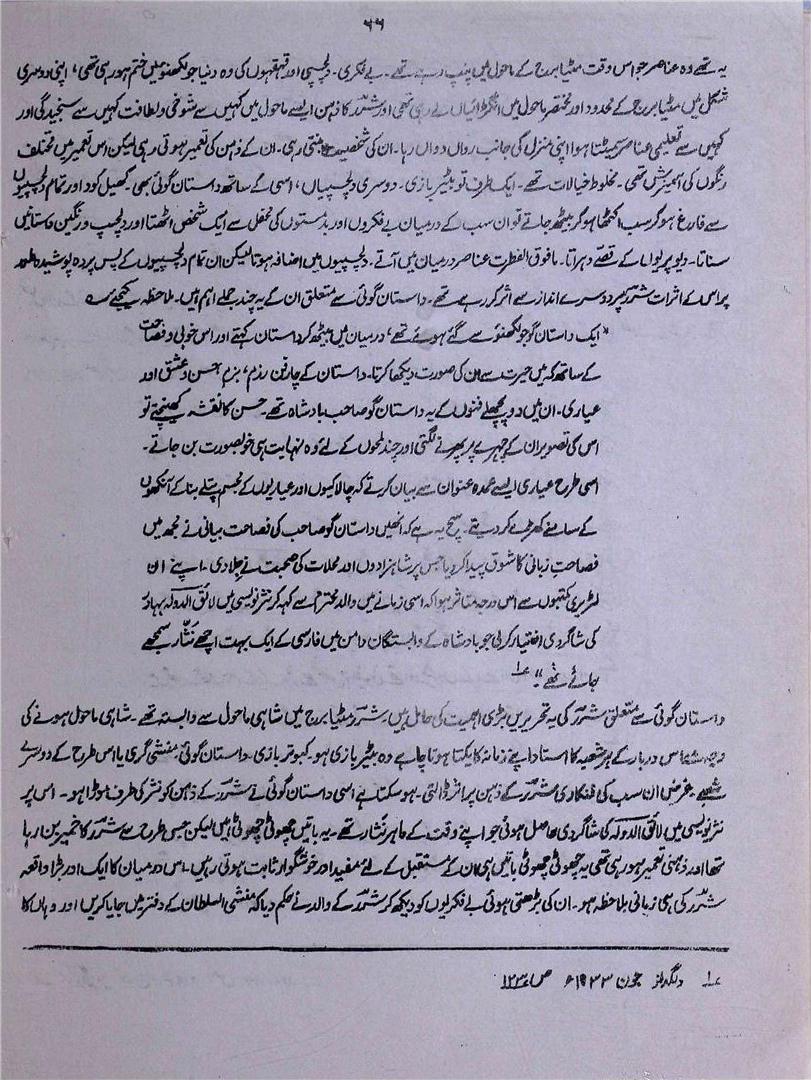 ۶۶
یہ تھے وہ عناصر جو اس وقت مٹیا برج کے ماحول میں پنپ رہے تھے۔ بے فکری۔ دلچسپی اور قہقہوں کی وہ دنیا جو لکھنؤ میں ختم ہو رہی تھی، اپنی دوسری
شکل میں مٹیا برج کے محدود اور مختصر ماحول میں انگڑائیاں لے رہی تھی اور شررؔ کا ذہن ایسے ماحول میں کہیں سے شوخی و لطافت کہیں سے سنجیدگی اور
کہیں سے تعلیمی عناصر سمیٹتا ہوا اپنی منزل کی جانب رواں دواں رہا۔ ان کی شخصیت بنتی رہی۔ ان کے ذہن کی تعمیر ہوتی رہی لیکن اس تعمیر میں مختلف
رنگوں کی آمیزش تھی۔ مخلوط خیالات تھے۔ ایک طرف تو بٹیر بازی۔ دوسری دلچسپیاں، اسی کے ساتھ داستان گوئی بھی۔ کھیل کود اور تمام دلچسپیوں
سے فارغ ہو کر سب اکٹھا ہو کر بیٹھ جاتے تو ان سب کے درمیان بے فکروں اور بدمستوں کی محفل سے ایک شخص اٹھتا اور دلچسپ و رنگین داستانیں
سناتا۔ دیو پریوں کے قصے دہراتا۔ مافوق الفطرت عناصر درمیان میں آتے۔ دلچسپیوں میں اضافہ ہوتا لیکن ان تمام دلچسپیوں کے پس پردہ پوشیدہ طور
پر اس کے اثرات شررؔ پر دوسرے انداز سے اثر کر رہے تھے۔ داستان گوئی سے متعلق ان کے یہ چند جملے اہم ہیں۔ ملاحظہ کیجئے
"ایک داستان گو جو لکھنؤ سے گئے ہوئے تھے، درمیان میں بیٹھ کر داستان کہتے اور اس خوبی و فصاحت
کے ساتھ کہ میں حیرت سے ان کی صورت دیکھا کرتا۔ داستان کے چار فن رزم، بزم، حسن و عشق اور
عیاری۔ ان میں دو پچھلے فنوں کے یہ داستان گو صاحب بادشاہ تھے۔ حسن کا نقشہ کھینچتے تو
اس کی تصویر ان کے چہرے پر پھرنے لگتی اور چند لمحوں کے لئے وہ نہایت ہی خوبصورت بن جاتے۔
اسی طرح عیاری ایسے عمدہ عنوان سے بیان کرتے کہ چالاکیوں اور عیاریوں کے مجسم پتلے بنا کے آنکھوں
کے سامنے کھڑے کر دیتے۔ سچ یہ ہے کہ انھیں داستان گو صاحب کی فصاحت بیانی نے مجھ میں
فصاحتِ زبانی کا شوق پیدا کر دیا جس پر شاہزادوں اور محلات کی صحبت نے جلا دی۔ اپنے ان
لٹریری کتبوں سے اس درجہ متاثر ہوا کہ اسی زمانے میں والد محترم سے کہہ کر نثر نویسی میں لائق الدولہ بہادر
کی شاگردی اختیار کر لی جو بادشاہ کے وابستگان دامن میں فارسی کے ایک بہت اچھے نثار سمجھے
جاتے تھے" ؎۱
داستان گوئی سے متعلق شررؔ کی یہ تحریریں بڑی اہمیت کی حامل ہیں۔ شررؔ مٹیا برج میں شاہی ماحول سے وابستہ تھے۔ شاہی ماحول ہونے کی
وجہ سے اس دربار کے ہر شعبہ کا استاد اپنے زمانہ کا یکتا ہوتا چاہے وہ بٹیر بازی ہو۔ کبوتر بازی۔ داستان گوئی، منشی گری یا اس طرح کے دوسرے
شعبے۔ غرض ان سب کی فنکاری شررؔ کے ذہن پر اثر ڈالتی۔ ہو سکتا ہے اسی داستان گوئی نے شررؔ کے ذہن کو نثر کی طرف موڑا ہو۔ اس پر
نثر نویسی میں لائق الدولہ کی شاگردی حاصل ہوئی جو اپنے وقت کے ماہر نثار تھے۔ یہ باتیں چھوٹی چھوٹی ہیں لیکن جس طرح سے شررؔ کا خمیر بن رہا
تھا اور ذہنی تعمیر ہو رہی تھی یہ چھوٹی چھوٹی باتیں ہی ان کے مستقبل کے لئے مفید اور خوشگوار ثابت ہوتی رہیں۔ اس درمیان کا ایک اور بڑا واقعہ
شررؔ کی ہی زبانی ملاحظہ ہو۔ ان کی بڑھتی ہوئی بے فکریوں کو دیکھ کر شررؔ کے والد نے حکم دیا کہ منشی السلطان کے دفتر میں جایا کریں اور وہاں کا
؎۱ دلگداز جون ۱۹۳۳ء ص